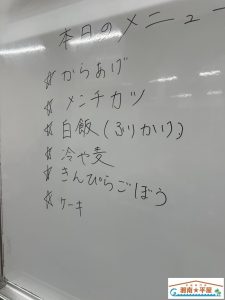 本日のメニュー
☆からあげ
☆メンチカツ
☆白飯(ふりかけ)
☆冷や麦
☆きんぴらごぼう
☆ケーキ
湘南★平屋